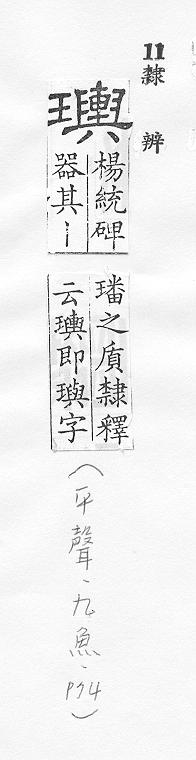 11 隸辨
楊統碑
器其丨
璠之質隸釋
云 即璵字
(平聲、九魚、P74)